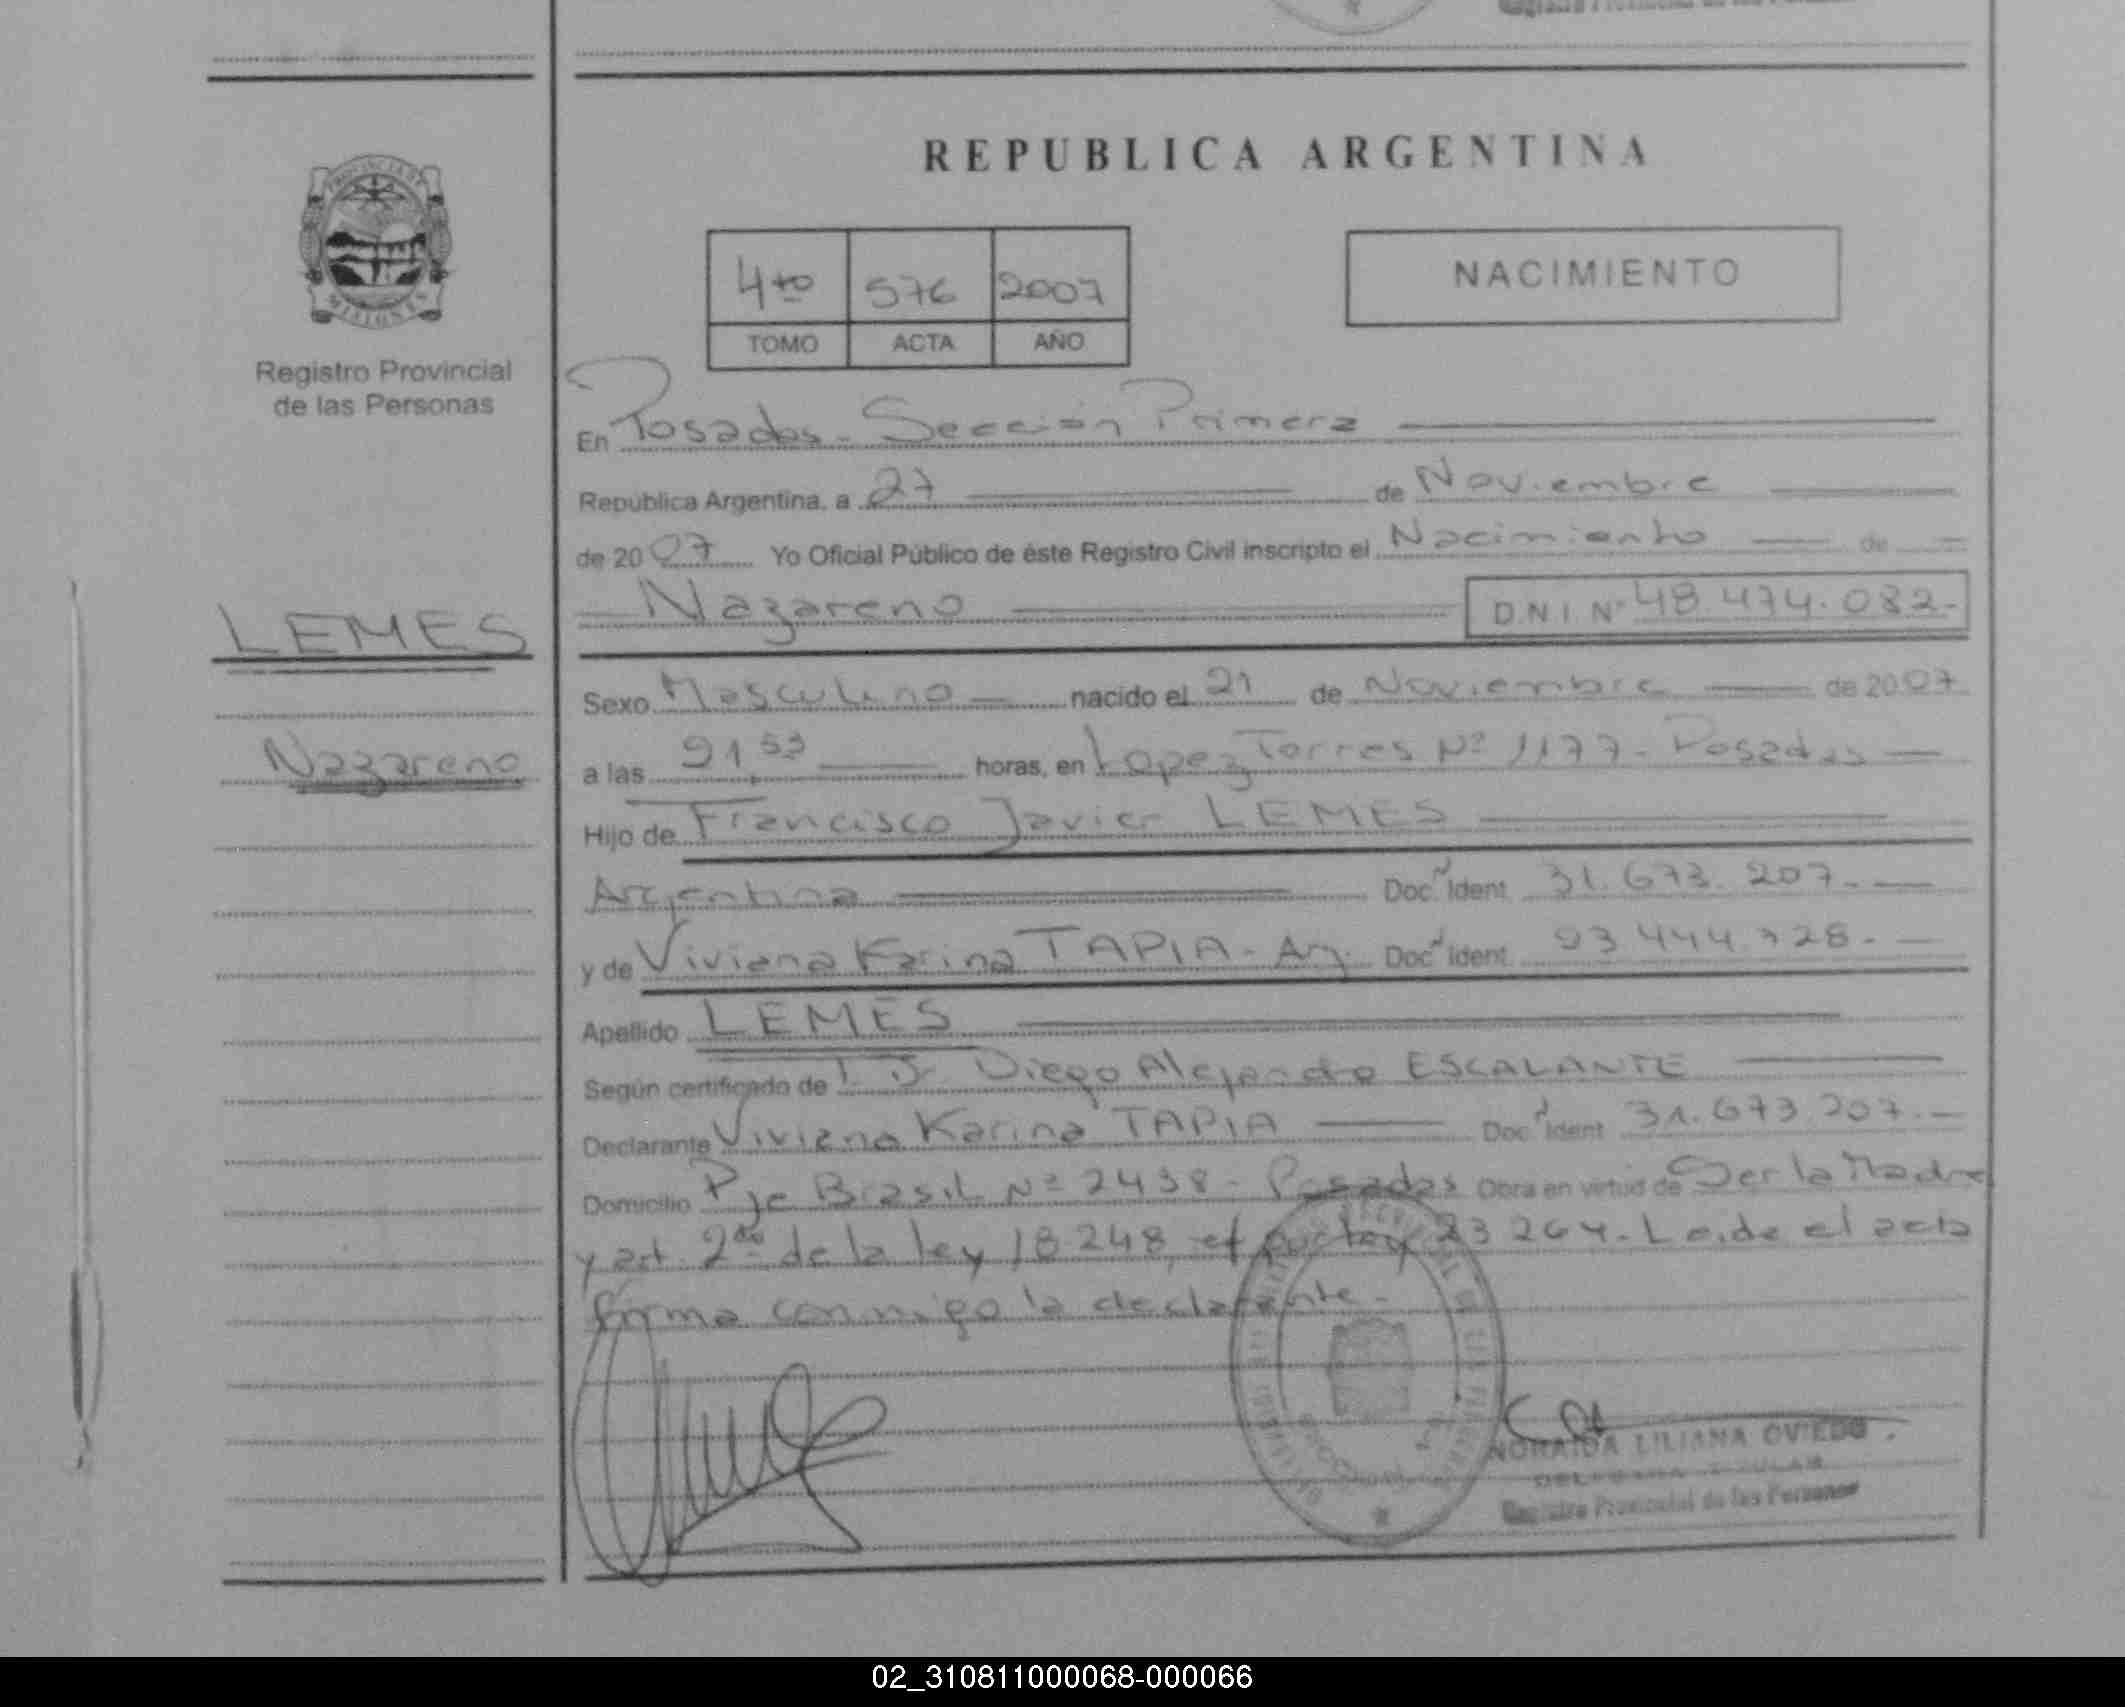 REPUBLICA ARGENTINA
PROVINCIA DE
MISIONES
Registro Provincial
de las Personas
4to 576 2007
TOMO ACTA AÑO
NACIMIENTO
En Posadas - Sección Primera
República Argentina, a 27 de Noviembre
de 2007 Yo Oficial Público de éste Registro Civil inscripto el Nacimiento de
Nazareno D.N.I. Nº 48.474.082-
LEMES
Nazareno
Sexo Masculino nacido el 21 de Noviembre de 2007
a las 21,53 horas, en Lopez Torres Nº 1177 - Posadas
Hijo de Francisco Javier LEMES
Argentina Doc. Ident 31.673.207-
y de Viviana Karina TAPIA - Arg. Doc. Ident
Apellido LEMES
Según certificado de Diego Alejandro ESCALANTE
Declarante Viviana Karina TAPIA Doc. Ident 31.673.207.-
Domicilio Pje Brasil Nº 2438 - Posadas Obra en virtud de Ser la Madre
y art. 2do de la ley 18248, 23264. Leida el acta
firma conmigo la declarante.-
NORAIDA LILIANA OVIEDO
DELEGADA TITULAR
Registro Provincial de las Personas
02_310811000068-000066